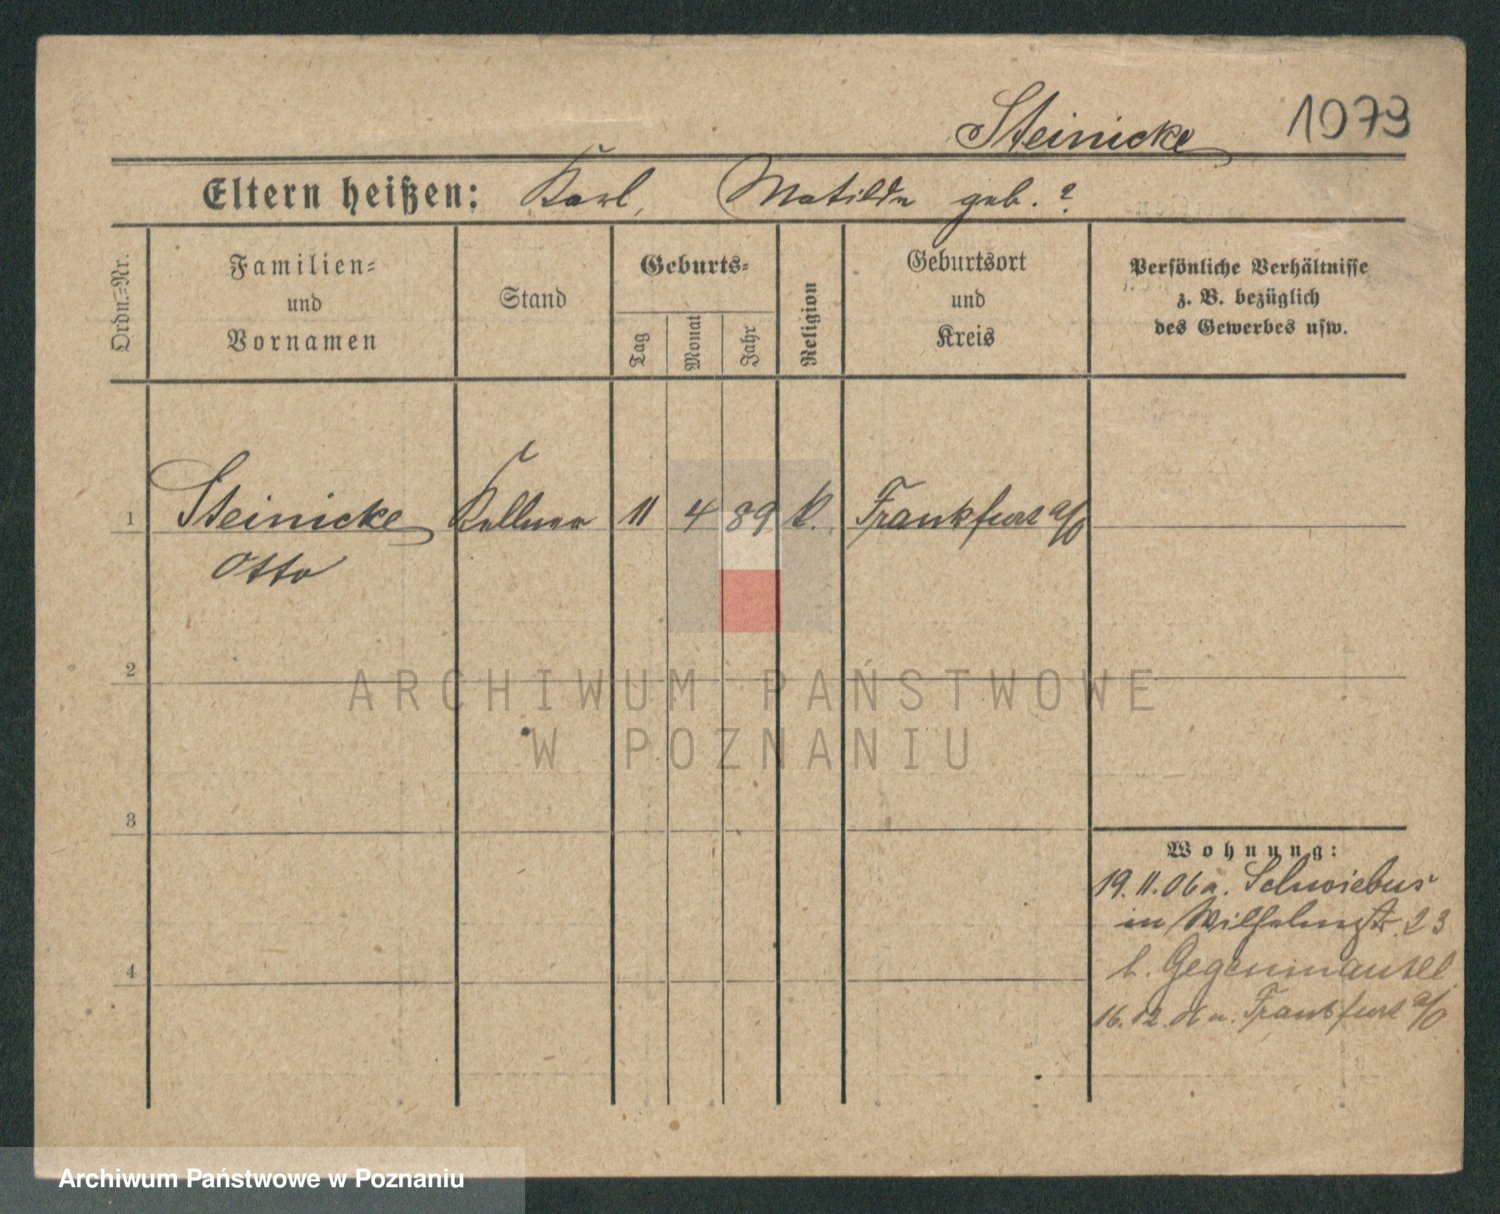 Steinicke 1073
Eltern heißen: Karl, Matilde geb. ?
Ordn.-Nr.
Familien-
und
Vornamen
Stand
Geburts-
Tag
Monat
Jahr
Religion
Geburtsort
und
Kreis
Persönliche Verhältnisse
z. B. bezüglich
des Gewerbes usw.
1 Steinicke Kellner 11 4 89 k. Frankfurt a/O
Otto
2
3
4
Wohnung:
19.11.06 a. Schwiebus
in Wilhelmstr. 23
b. Gegenmantel
16.12.06 n. Frankfurt a/O
ARCHIWUM PAŃSTWOWE
W POZNANIU
Archiwum Państwowe w Poznaniu